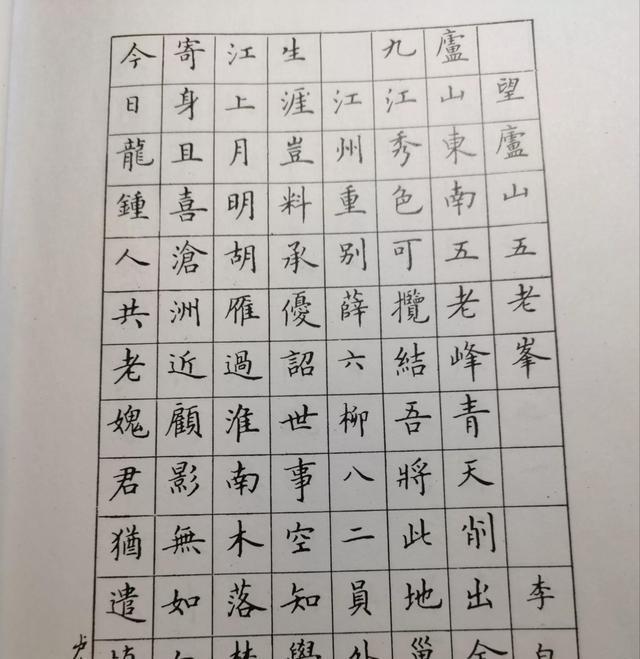 望廬山五老峯 李白
廬山東南五老峰青天削出金
九江秀色可攬結吾將此地巢
江州重別薛六柳八二員外
生涯豈料承優詔世事空知學
江上月明胡雁過淮南木落楚
寄身且喜滄洲近顧影無如
今日龍鍾人共老媿君猶遣